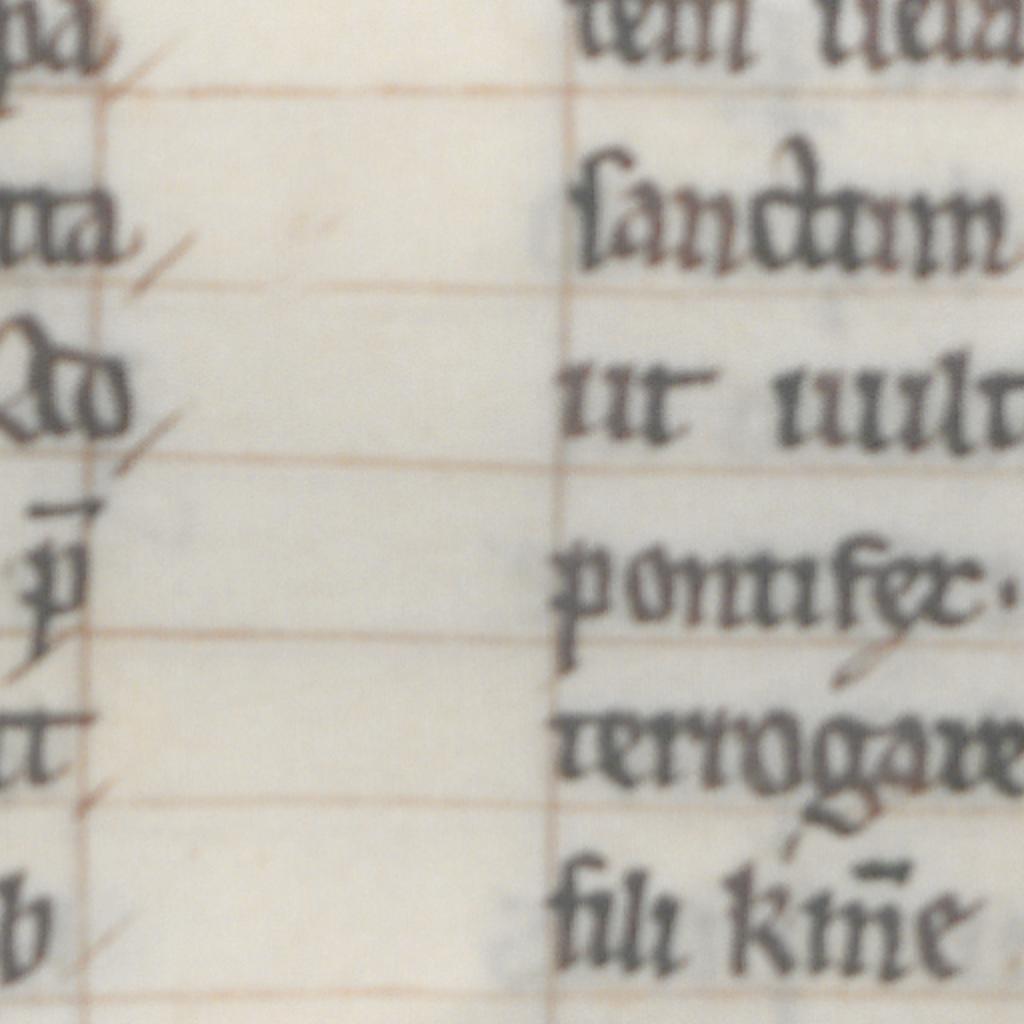 pa
tta
do
p̄
tt
b
tem uela
sanctum
ut uult
pontifex.
terrogare
fili km̄e